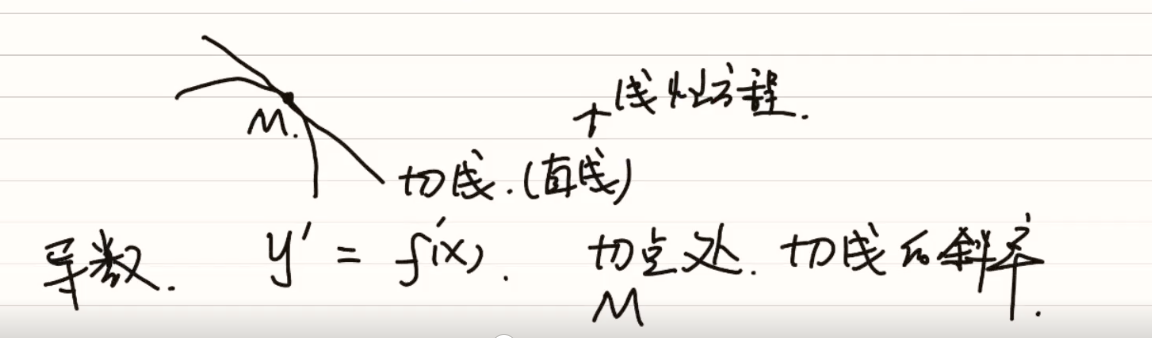 线性方程.
M.
切线.(直线)
导数. y' = f'(x). 切点处. 切线的斜率.
M